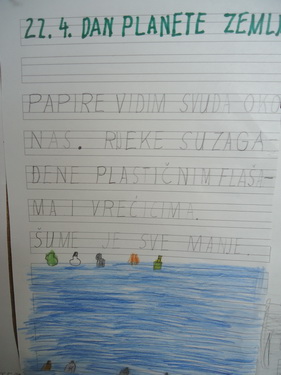 22.4. DAN PLANETE ZEMLJ
PAPIRE VIDIM SVUDA OKO
NAS. RIJEKE SU ZAGA
ĐENE PLASTIČNIM FLAŠA-
MA I VREĆICIMA.
ŠUME JE SVE MANJE.